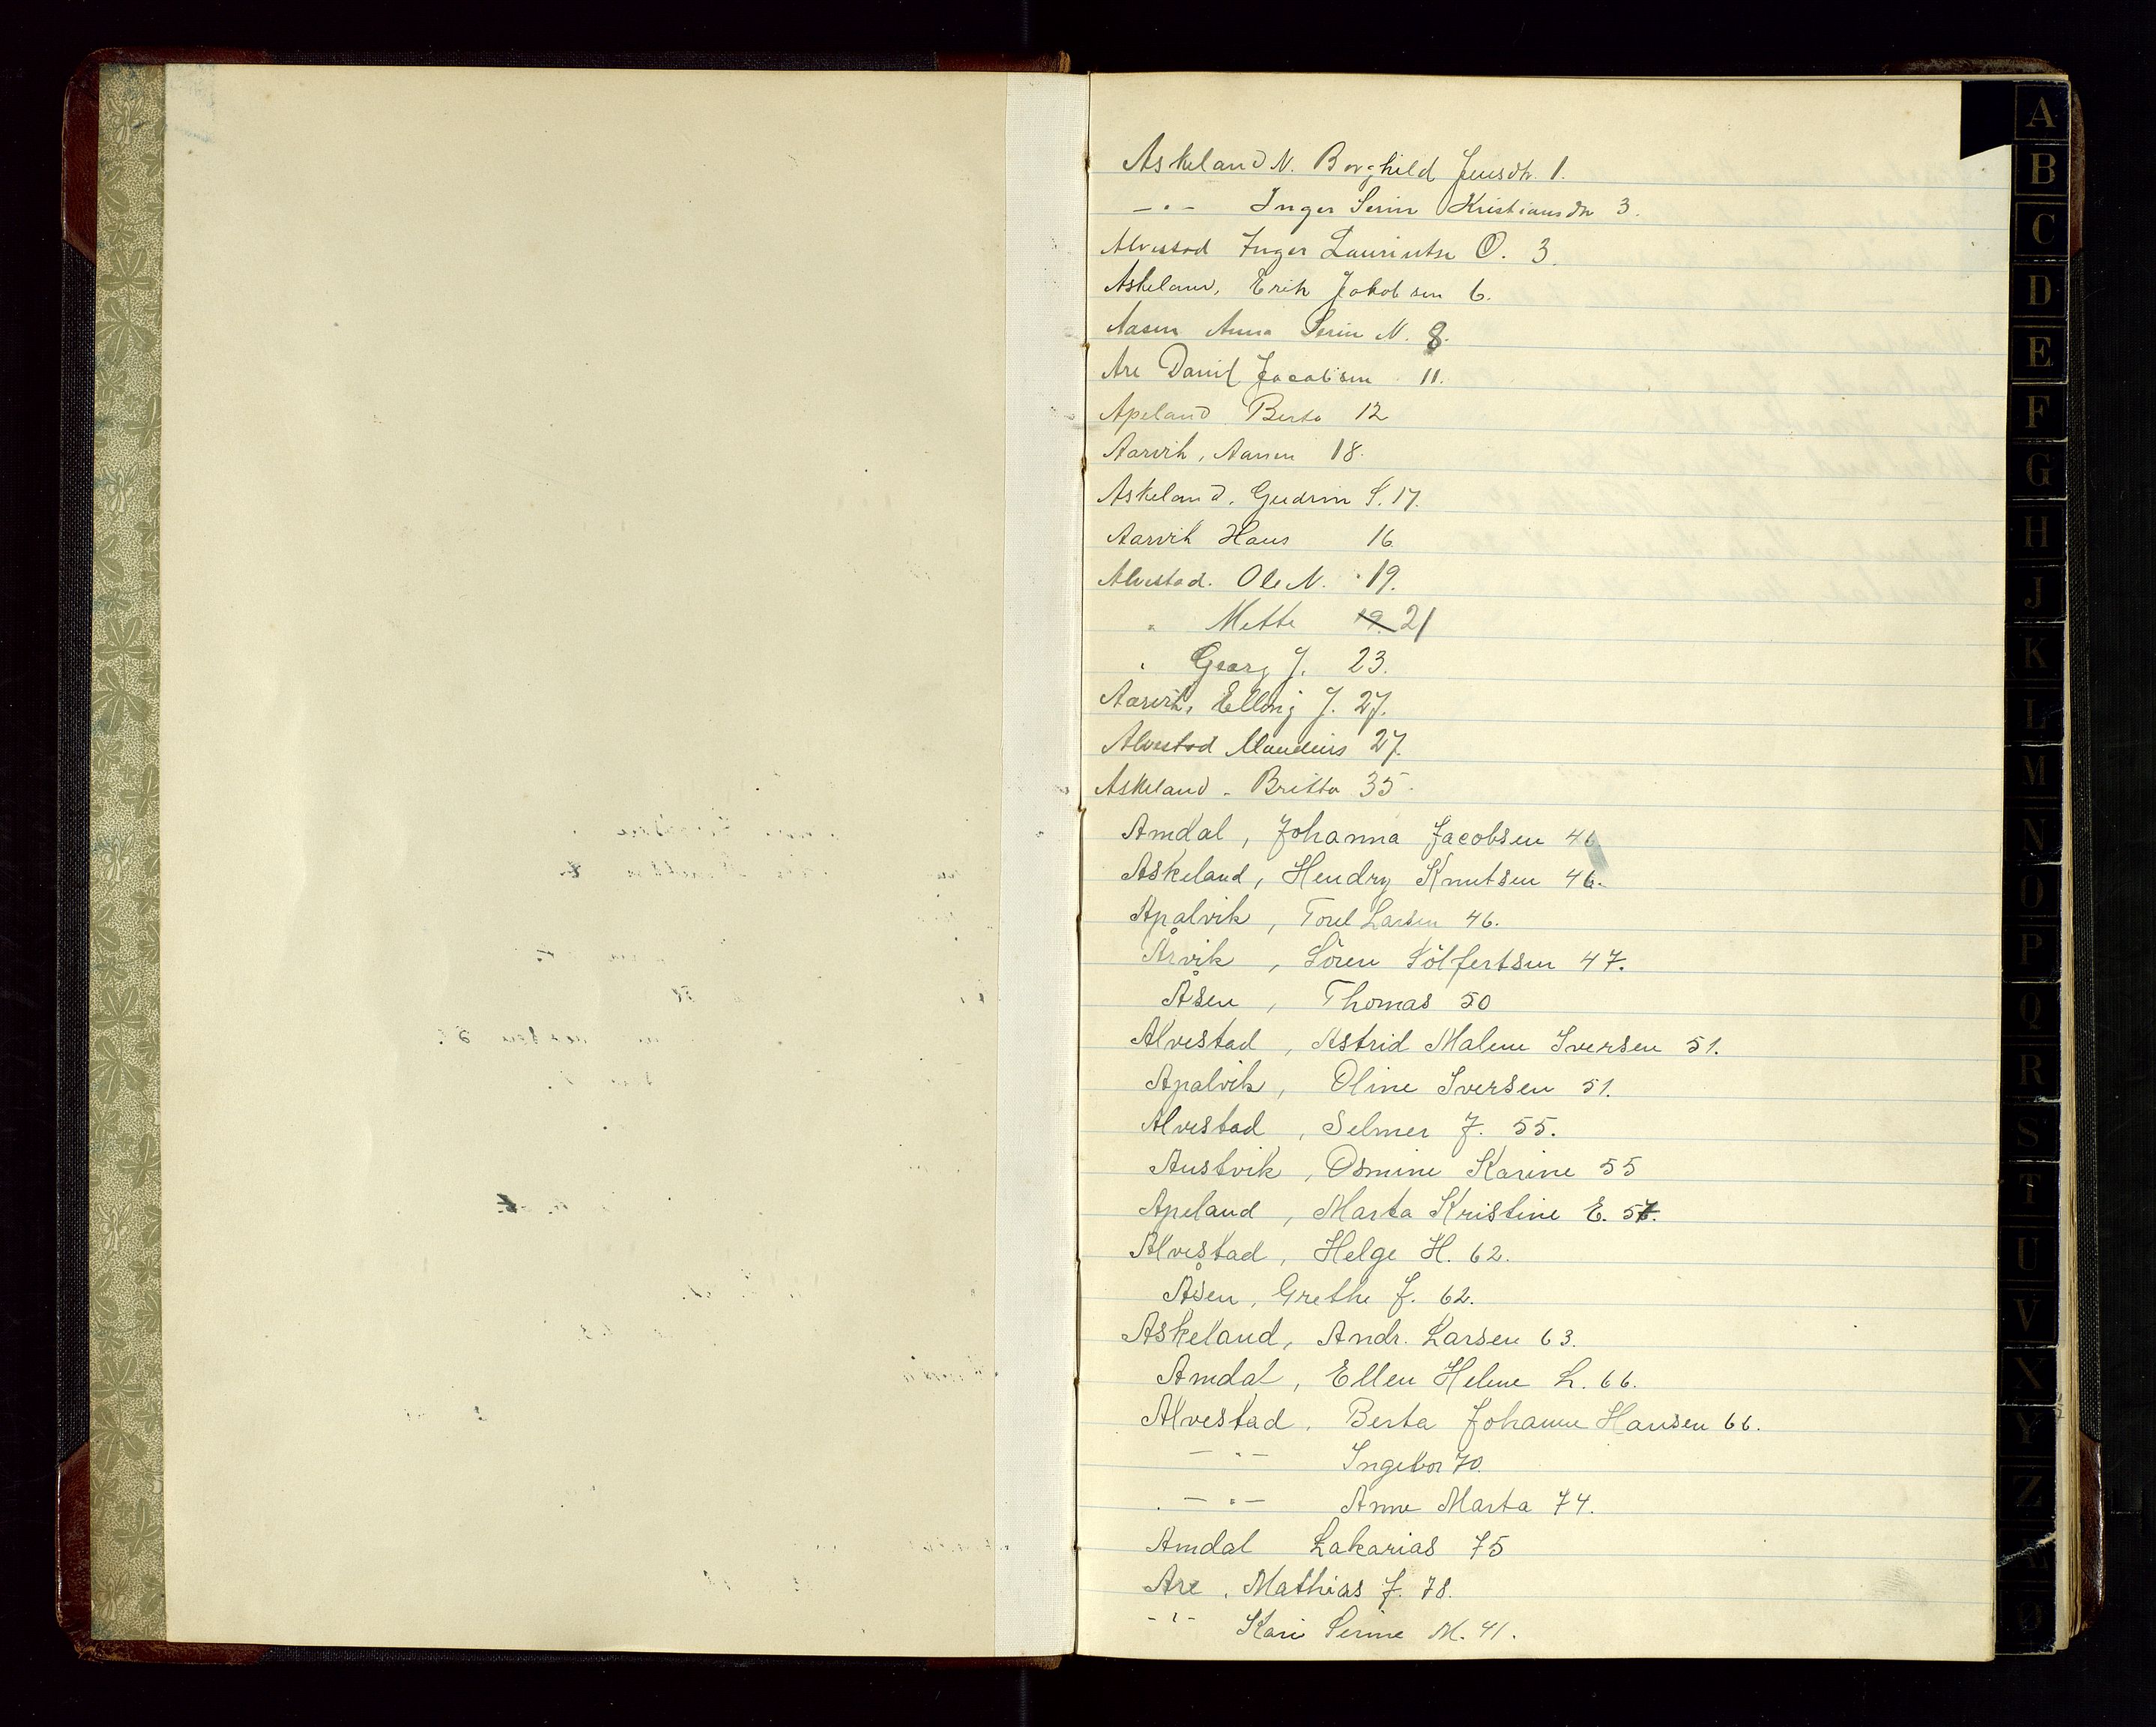 Askeland N. Borghild Jensdtr. 1.
—〃— Inger Serin Kristiansdtr 3.
Alvestad Inger Laurintse O. 3.
Askeland, Erik Jakobsen 6.
Aasen Anna Serin N. 8.
Are Daniel Jacobsen 11.
Apeland Berta 12
Aarvik, Aanen 18.
Askeland, Gudrun S. 17.
Aarvik Hans 16
Alvestad. Ole N. 19.
〃 Mette 19. 21
〃 Georg J. 23.
Aarvik, Elling J. 27.
Alvestad Mandius 27.
Askeland - Britta 35.
Amdal, Johanna Jacobsen 46
Askeland, Hendry Knutsen 46.
Apalvik, Torel Larsen 46.
Årvik, Sören Sölfertsen 47.
Åsen, Thomas 50
Alvestad, Astrid Malene Iversen 51.
Apalvik, Oline Iversen 51.
Alvestad, Selmer J. 55.
Austvik, Osmine Karine 55
Apeland, Marta Kristine E. 57.
Alvestad, Helge H. 62.
Åsen, Grethe J. 62.
Askeland, Andr. Larsen 63.
Amdal, Ellen Helene L. 66.
Alvestad, Berta Johanne Hansen 66.
—〃— Ingebor 70.
—〃— Anne Marta 74.
Amdal Zakarias 75
Are, Mathias J. 78.
-〃- Kari Serine M. 41.
A
B
C
D
E
F
G
H
J
K
L
M
N
O
P
Q
R
S
T
U
V
X
Y
Z
Æ
Ø